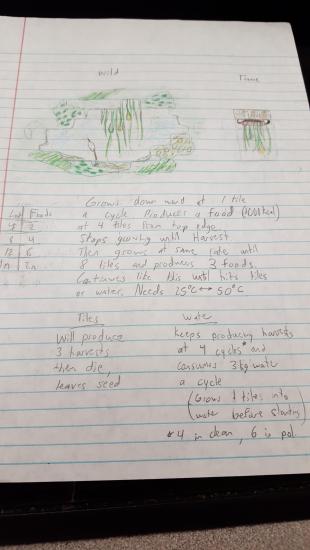 Wild
Tame
Grows downward at 1 tile
a cycle Produces a food
at 4 tiles from top edge.
Stops growing until Harvest
Then grows at same rate until
8 tiles and produces 3 foods.
Continues like this until hits tiles
or water. Needs 15°C ↔ 50°C
Foods
4 2
8 4
12 6
Tiles
Will produce
3 harvests
then die,
leaves seed
Water
keeps producing harvests
at 4 cycles* and
consumes 3kg water
a cycle
(Grows 1 tiles into
water before starting)
*4 in clean, 6 in pol